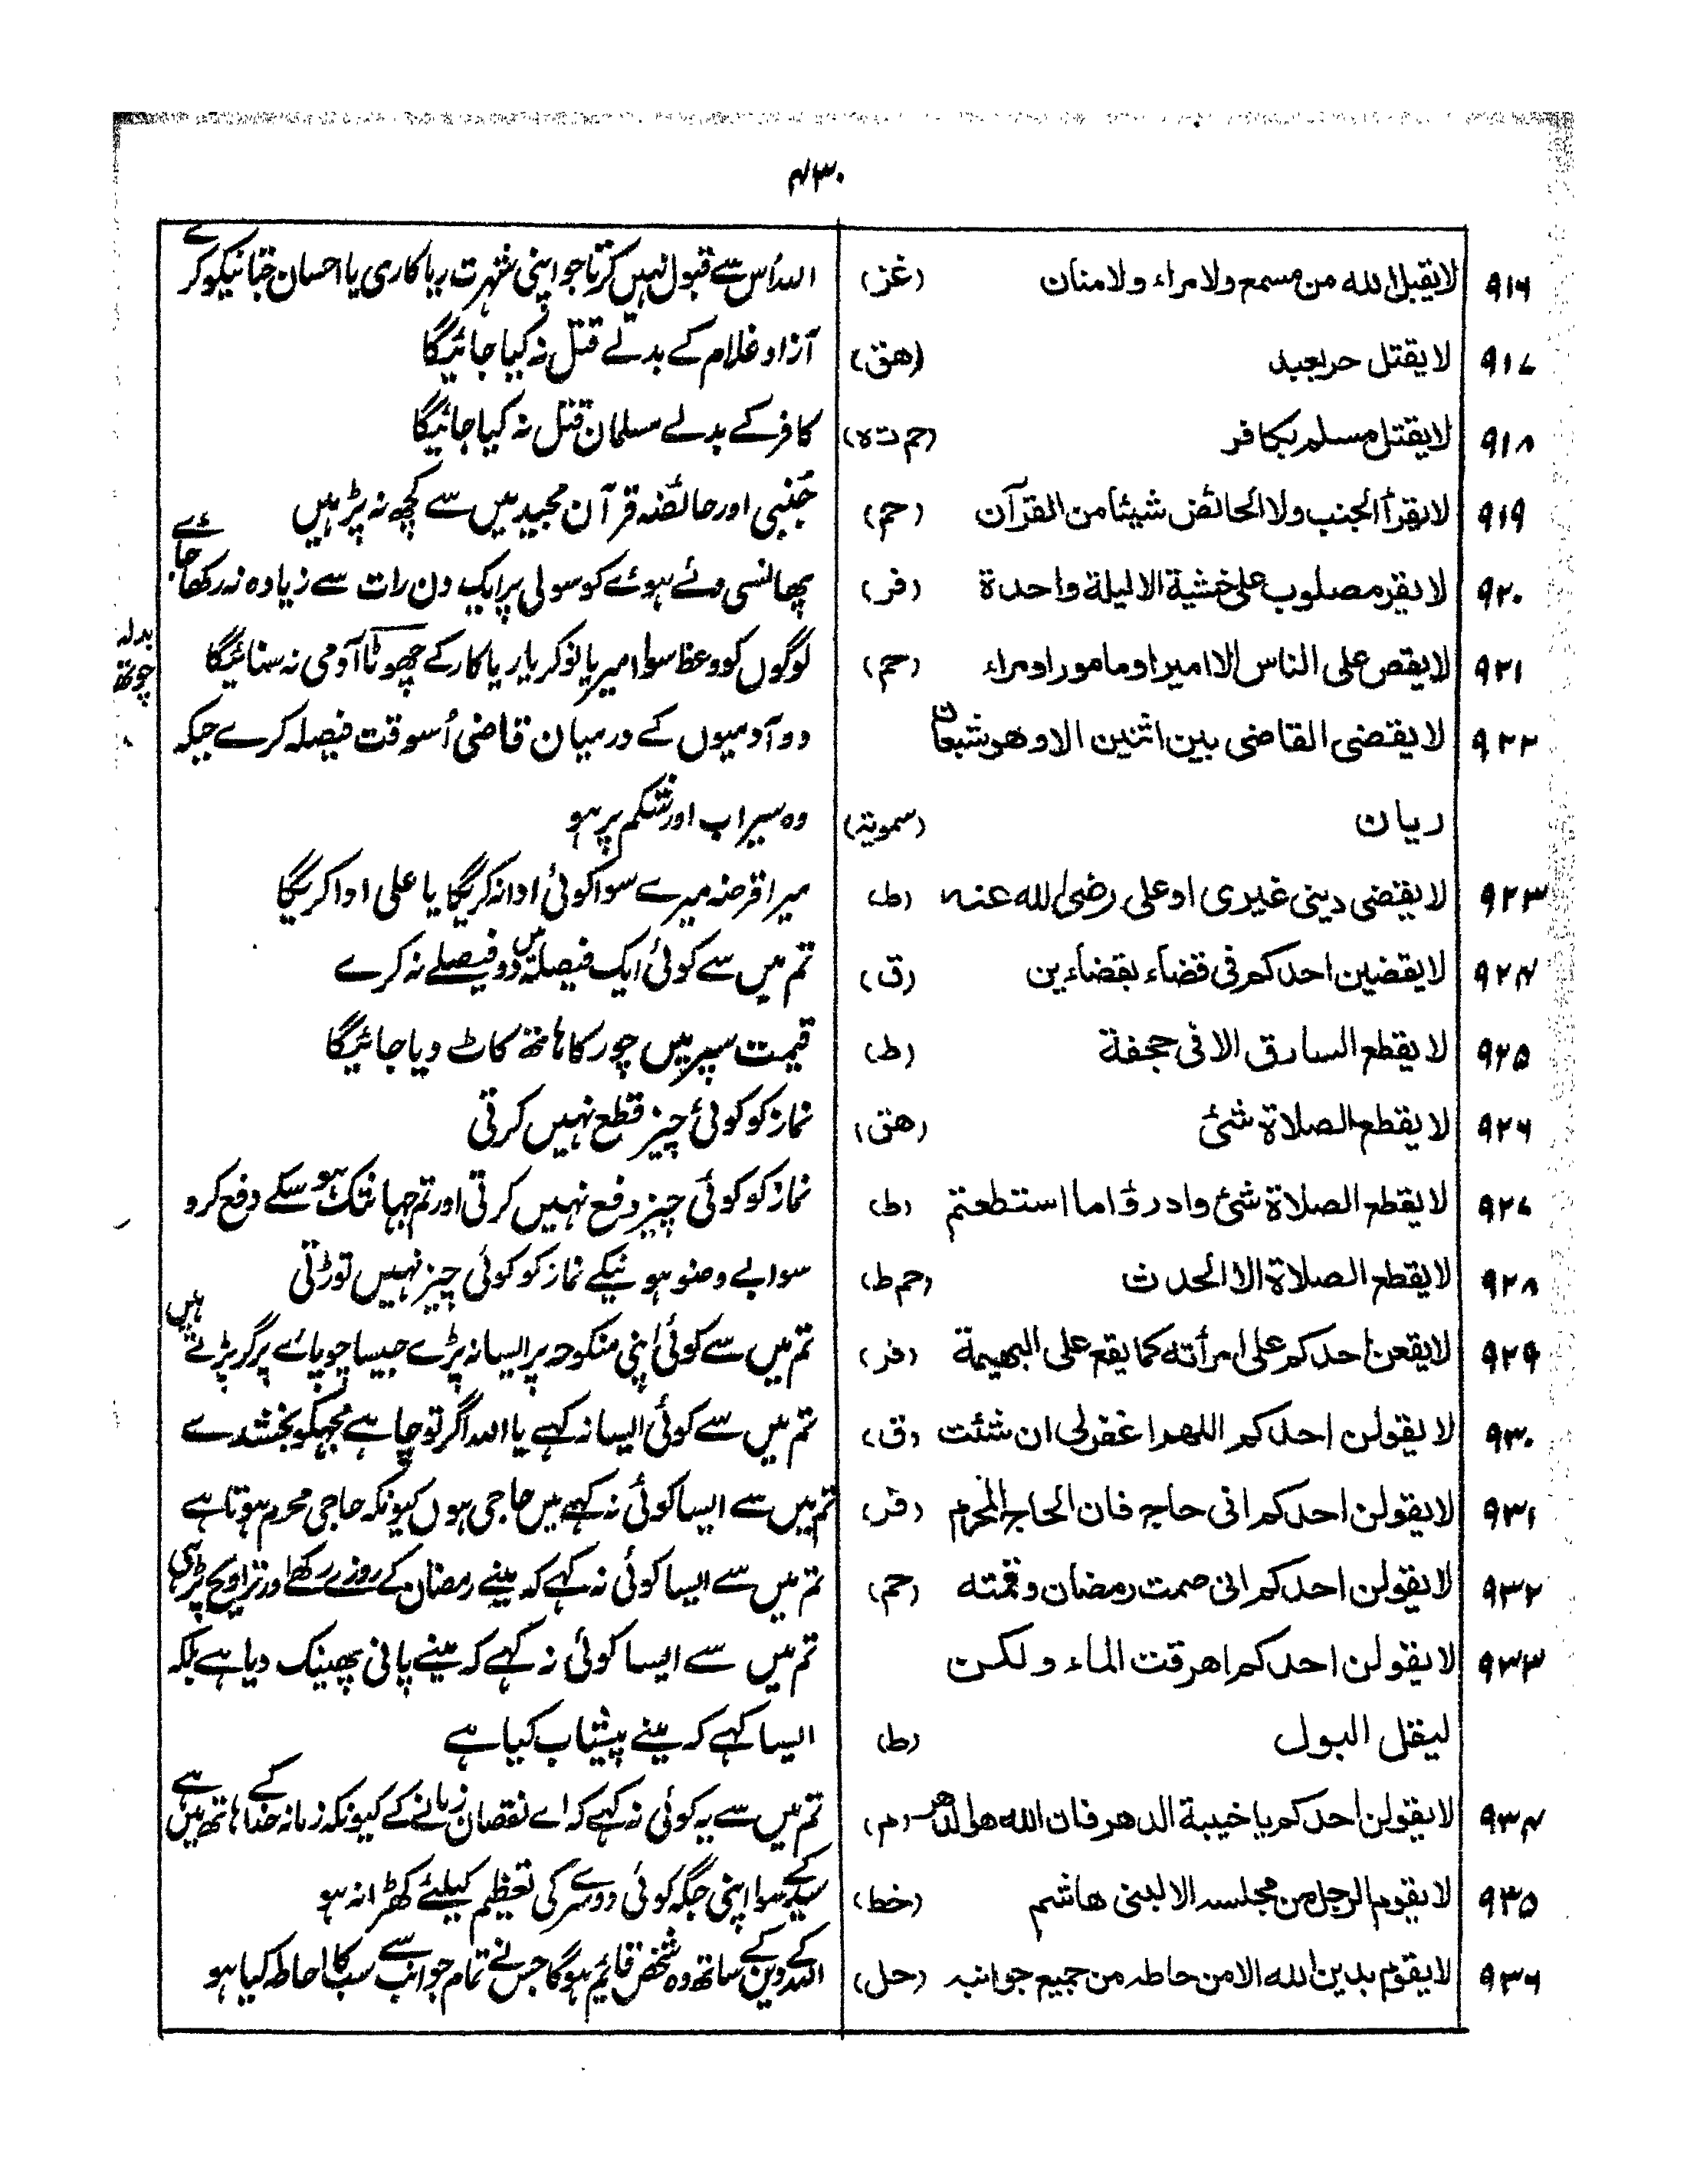 ۴۳۰
۹۱۶ لا يقبل الله من مسمع ولا مراء ولا منان (غز) اللہ اُس سے قبول نہیں کرتا جو اپنی شہرت ریا کاری یا احسان جتانیکو کرے
۹۱۷ لا يقتل حر بعبد (هق) آزاد غلام کے بدلے قتل نہ کیا جائیگا
۹۱۸ لا يقتل مسلم بكافر (حم ت ه) کافر کے بدلے مسلمان قتل نہ کیا جائیگا
۹۱۹ لا يقرأ الجنب ولا الحائض شيئا من القرآن (حم) جُنبی اور حائضہ قرآن مجید میں سے کچھ نہ پڑہیں
۹۲۰ لا يقر مصلوب على خشية الا ليلة واحدة (فر) پھانسی دئے ہوئے کو سولی پر ایک دن رات سے زیادہ نہ رکھا جائے
۹۲۱ لا يقص على الناس الا امير او مامور او مراء (حم) لوگوں کو وعظ سوا امیر یا نوکر یا ریا کار کے چھوٹا آدمی نہ سنائیگا
بدلہ چوتھ
۹۲۲ لا يقضى القاضى بين اثنين الا وهو شبعان دو آدمیوں کے درمیان قاضی اُسوقت فیصلہ کرے جبکہ
ريان (سموية) وہ سیراب اور شکم پر ہو
۹۲۳ لا يقضى دينى غيرى او على رضى الله عنه (ط) میرا قرضہ میرے سوا کوئی ادا نہ کریگا یا علی ادا کریگا
۹۲۴ لا يقضين احدكم فى قضاء بقضاءين (ق) تم میں سے کوئی ایک فیصلہ میں دو فیصلے نہ کرے
۹۲۵ لا يقطع السارق الا فى حجفة (ط) قیمت سپر میں چور کا ہاتھ کاٹ دیا جائیگا
۹۲۶ لا يقطع الصلاة شئ (هق) نماز کو کوئی چیز قطع نہیں کرتی
۹۲۷ لا يقطع الصلاة شئ وادرؤا ما استطعتم (ط) نماز کو کوئی چیز دفع نہیں کرتی اور تم جہانتک ہو سکے دفع کرو
۹۲۸ لا يقطع الصلاة الا الحدث (حم ط) سوا بے وضو ہونیکے نماز کو کوئی چیز نہیں توڑتی
۹۲۹ لا يقعن احدكم على امرأته كما يقع على البهيمة (فر) تم میں سے کوئی اپنی منکوحہ پر ایسا نہ پڑے جیسا چوپائے پر گر پڑتے ہیں
۹۳۰ لا يقولن احدكم اللهم اغفرلى ان شئت (ق) تم میں سے کوئی ایسا نہ کہے یا اللہ اگر تو چاہے مجہکو بخشدے
۹۳۱ لا يقولن احدكم انى حاج فان الحاج المحرم (فر) تم میں سے ایسا کوئی نہ کہے میں حاجی ہوں کیونکہ حاجی محرم ہوتا ہے
۹۳۲ لا يقولن احدكم انى صمت رمضان وقمته (حم) تم میں سے ایسا کوئی نہ کہے کہ مینے رمضان کے روزے رکھے اور تراویح پڑہی
۹۳۳ لا يقولن احدكم اهرقت الماء ولكن تم میں سے ایسا کوئی نہ کہے کہ مینے پانی پھینک دیا ہے بلکہ
ليقل البول (ط) ایسا کہے کہ مینے پیشاب کیا ہے
۹۳۴ لا يقولن احدكم يا خيبة الدهر فان الله هو الدهر (م) تم میں سے یہ کوئی نہ کہے کہ اے نقصان زمانے کے کیونکہ زمانہ خدا کے ہاتھ میں ہے
۹۳۵ لا يقوم الرجل من مجلسه الا لبنى هاشم (خط) سید کے سوا اپنی جگہ کوئی دوسرے کی تعظیم کیلئے کھڑا نہ ہو
۹۳۶ لا يقوم بدين الله الا من حاطه من جميع جوانبه (حل) اللہ کے دین کے ساتھ وہ شخص قائم ہوگا جس نے تمام جوانب سے سب کا احاطہ کیا ہو